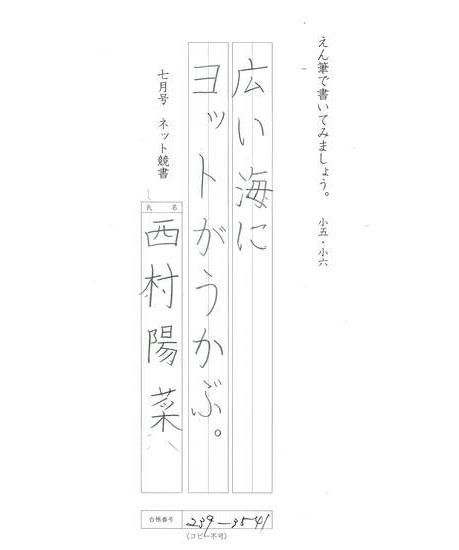 えん筆で書いてみましょう。 小五・小六
広い海に
ヨットがうかぶ。
七月号 ネット競書
氏名
西村陽菜
台帳番号 239-3541
(コピー不可)